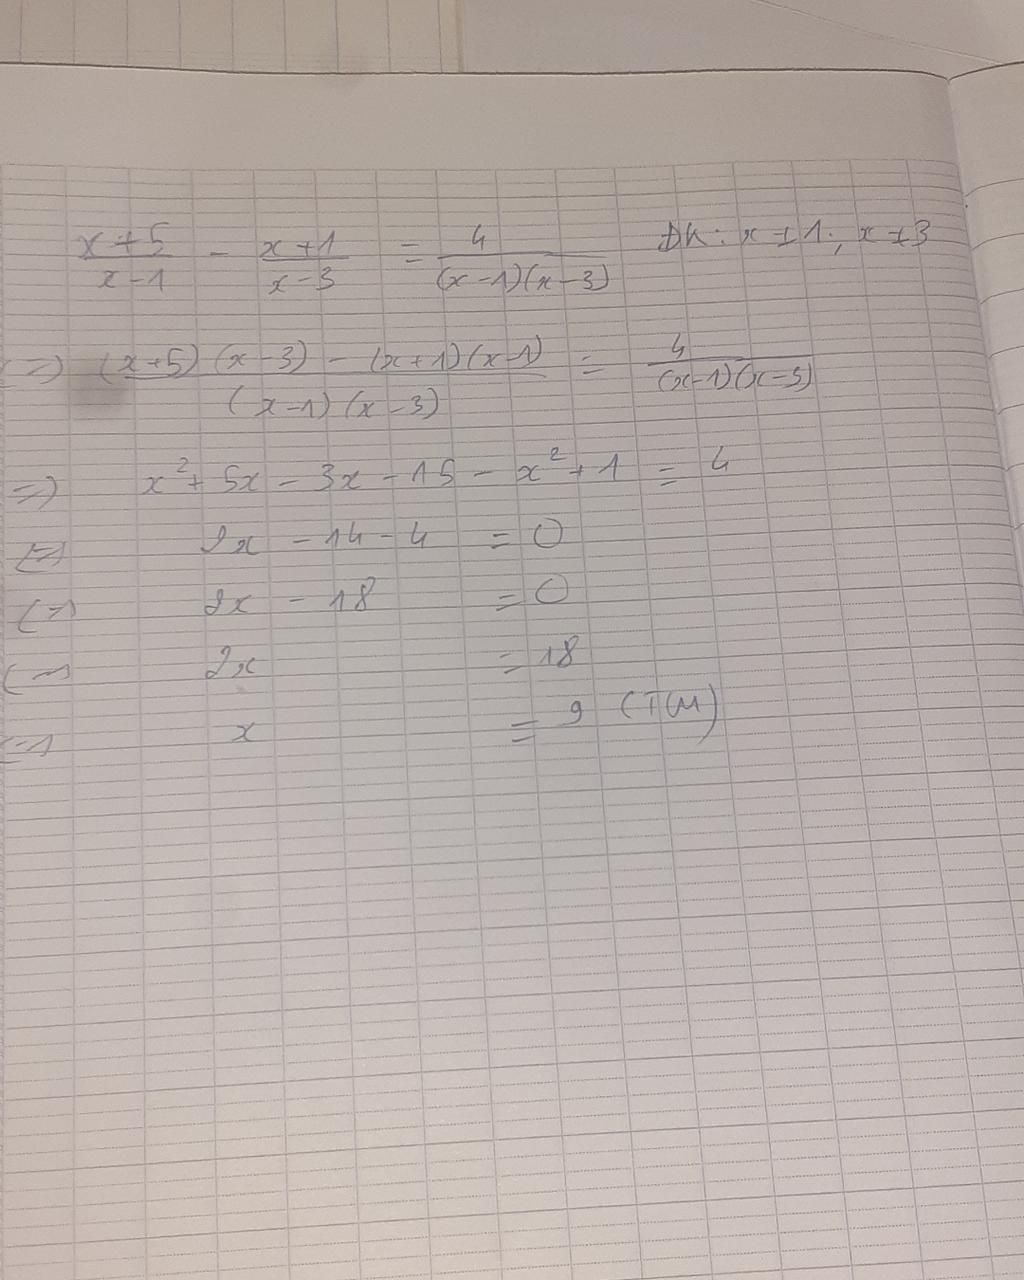 x+5/x-1 - x+1/x-3 = 4/(x-1)(x-3) ĐK: x≠1; x≠3
=> (x+5)(x-3) - (x+1)(x-1)/(x-1)(x-3) = 4/(x-1)(x-3)
=> x² + 5x - 3x - 15 - x² + 1 = 4
<=> 2x - 14 - 4 = 0
<=> 2x - 18 = 0
<=> 2x = 18
<=> x = 9 (TM)